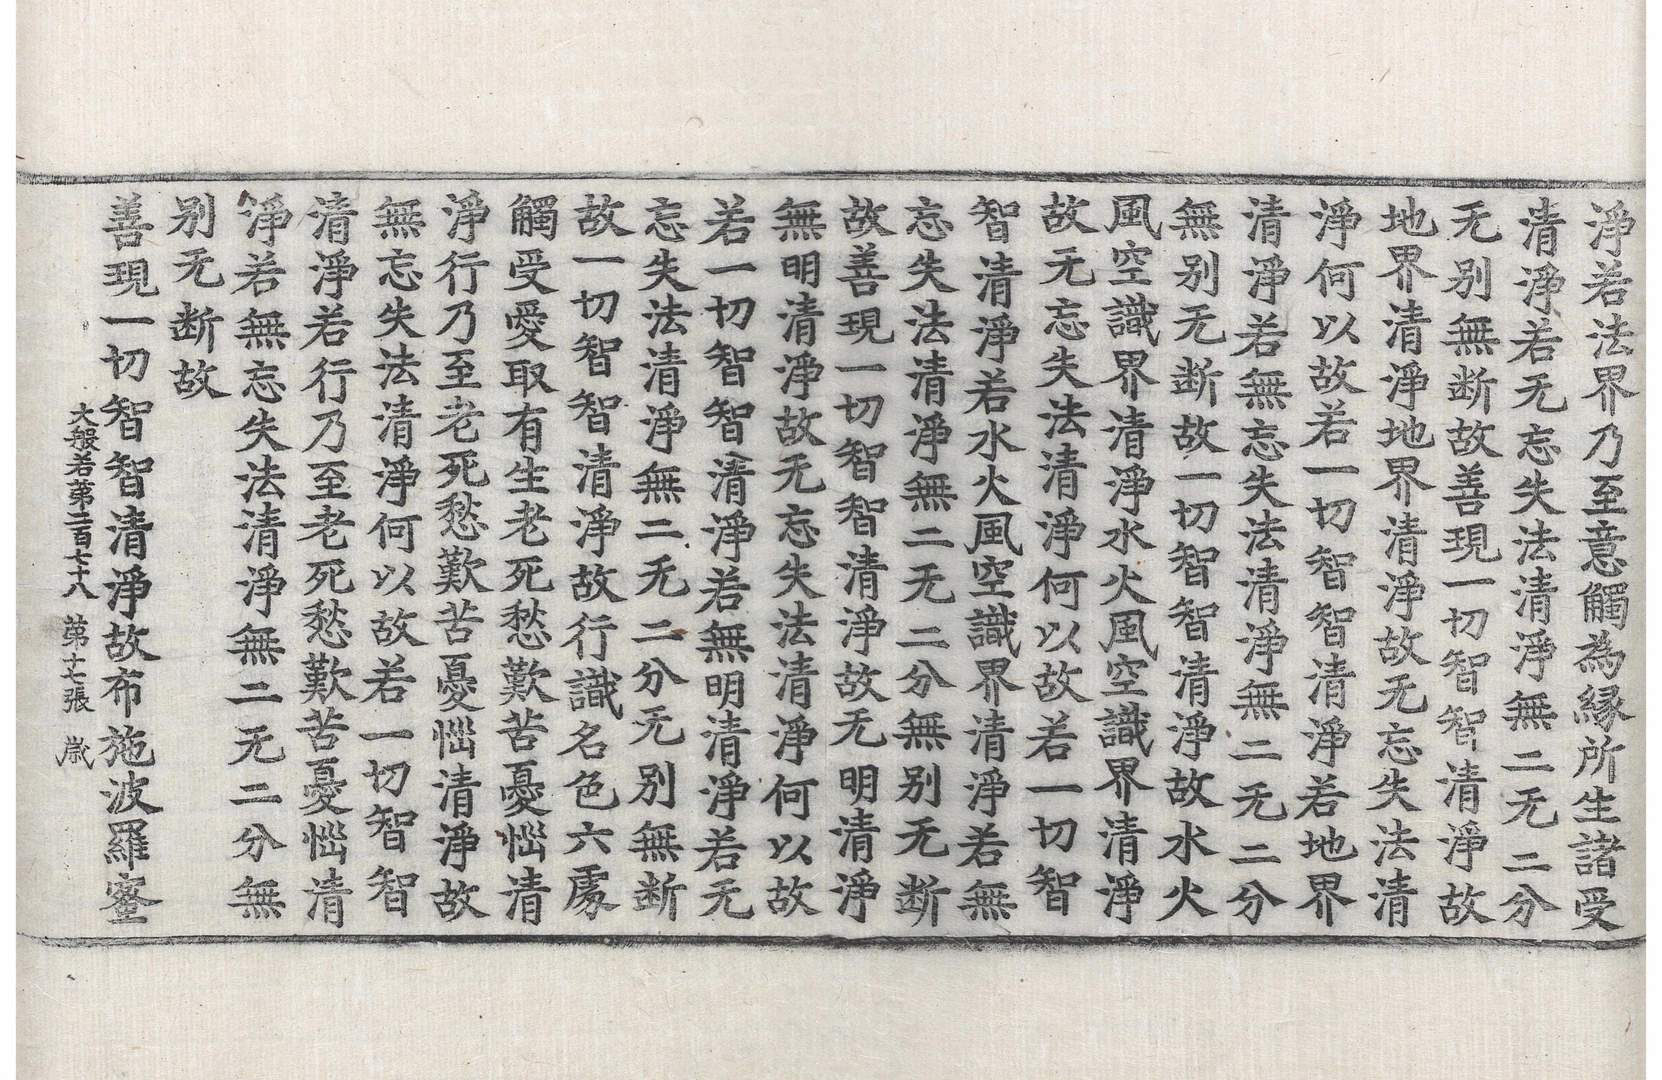 淨若法界乃至意觸為縁所生諸受
清淨若无忘失法清淨無二无二分
无别無断故善現一切智智清淨故
地界清淨地界清淨故无忘失法清
淨何以故若一切智智清淨若地界
清淨若無忘失法清淨無二无二分
無别无断故一切智智清淨故水火
風空識界清淨水火風空識界清淨
故无忘失法清淨何以故若一切智
智清淨若水火風空識界清淨若無
忘失法清淨無二无二分無别无断
故善現一切智智清淨故无明清淨
無明清淨故无忘失法清淨何以故
若一切智智清淨若無明清淨若无
忘失法清淨無二无二分无别無断
故一切智智清淨故行識名色六處
觸受愛取有生老死愁歎苦憂惱清
淨行乃至老死愁歎苦憂惱清淨故
無忘失法清淨何以故若一切智智
清淨若行乃至老死愁歎苦憂惱清
淨若無忘失法清淨無二无二分無
别无断故
善現一切智智清淨故布施波羅蜜
大般若第二百七十八 第十七張 歲